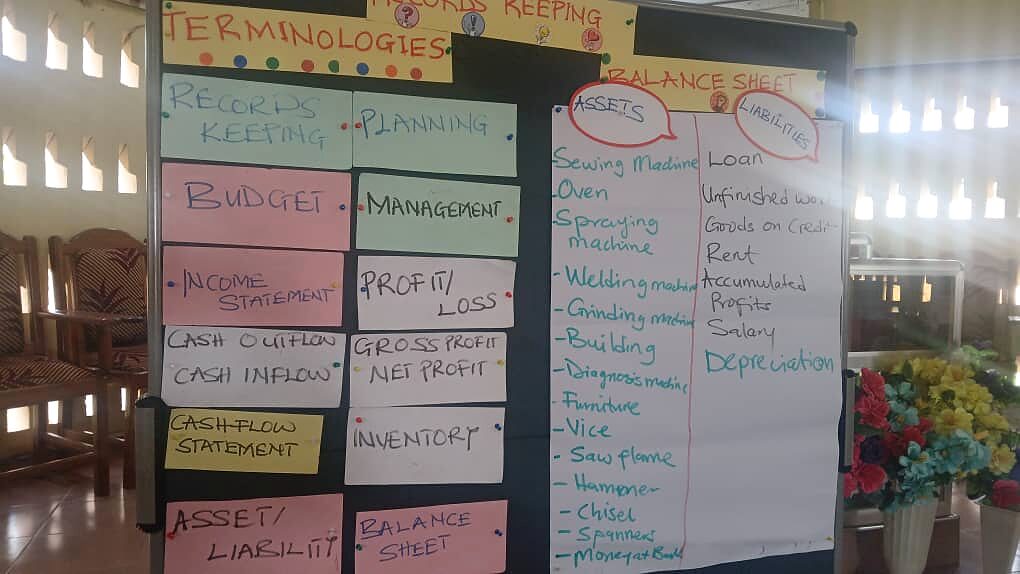 RECORDS KEEPING
TERMINOLOGIES
RECORDS
KEEPING
PLANNING
BUDGET
MANAGEMENT
INCOME
STATEMENT
PROFIT/
LOSS
CASH OUTFLOW
CASH INFLOW
GROSS PROFIT
NET PROFIT
CASH-FLOW
STATEMENT
INVENTORY
ASSET/
LIABILITY
BALANCE
SHEET
BALANCE SHEET
ASSETS
- Sewing Machine
- Oven
- Spraying
machine
- Welding machine
- Grinding machine
- Building
- Diagnosis machine
- Furniture
- Vice
- Saw flame
- Hammer
- Chisel
- Spanners
- Money at Bank
LIABILITIES
Loan
Unfinished work
Goods on Credit
Rent
Accumulated
Profits
Salary
Depreciation